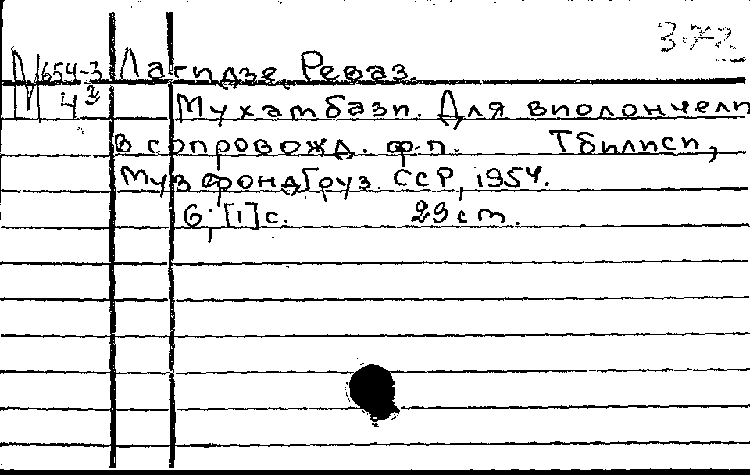 372
М 654-3 Лагидзе, Реваз.
4³ Мухамбази. Для виолончели
в сопровожд. ф.п. Тбилиси,
Музфонд Груз. ССР, 1954.
6; [1] с. 29 ст.